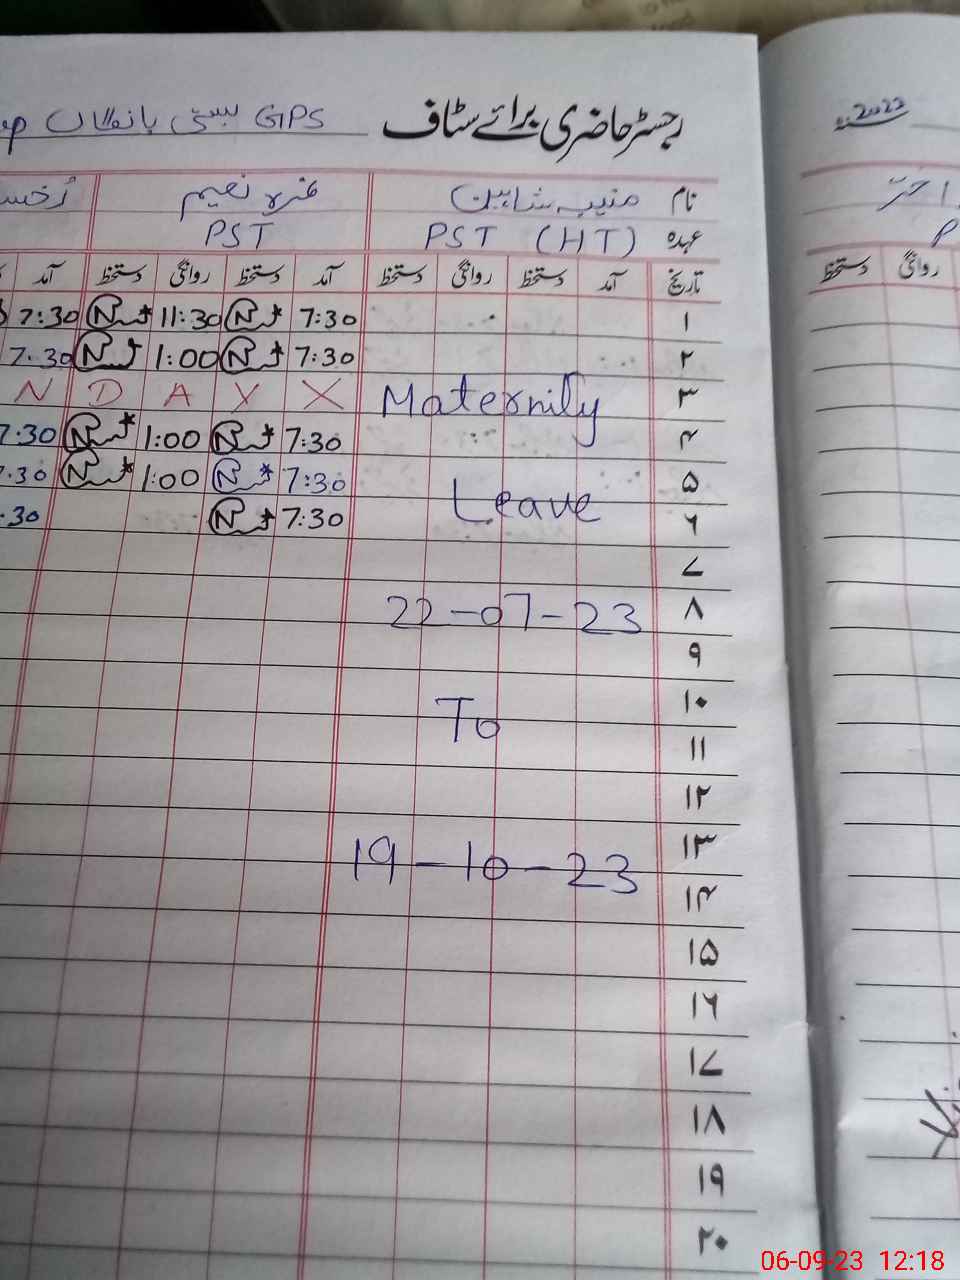 رجسٹر حاضری برائے سٹاف GPS بستی
2022
نام منیبہ شاہین نعیم
عہدہ PST (HT) PST
تاریخ آمد دستخط روانگی دستخط آمد دستخط روانگی دستخط آمد
روانگی دستخط
۱ 7:30 11:30 7:30
۲ 7:30 1:00 7:30
۳ X Y A D N
Maternity
۴ 7:30 1:00 7:30
۵ 7:30 1:00 7:30
Leave
۶ 7:30 :30
۷
۸ 22-07-23
۹
۱۰ To
۱۱
۱۲
۱۳ 19-10-23
۱۴
۱۵
۱۶
۱۷
۱۸
۱۹
۲۰
06-09-23 12:18